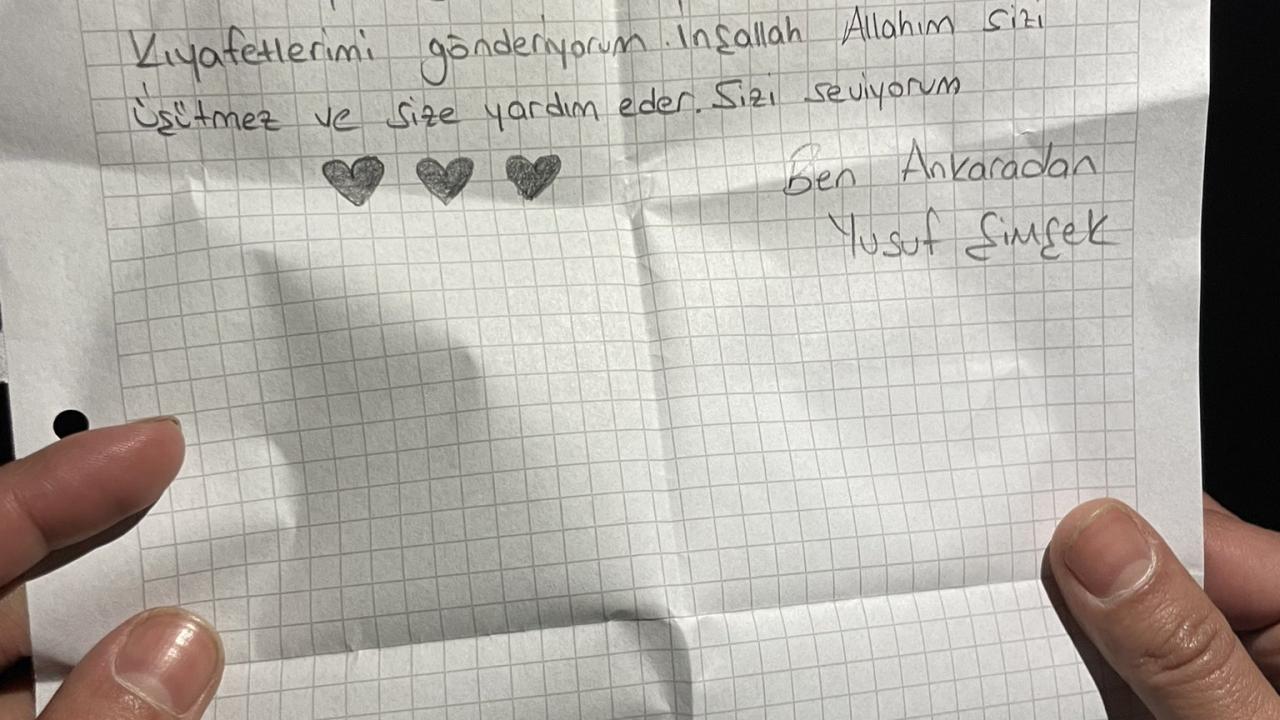 Kıyafetlerimi gönderiyorum. İnşallah Allahım sizi
üşütmez ve size yardım eder. Sizi seviyorum
Ben Ankaradan
Yusuf Şimşek